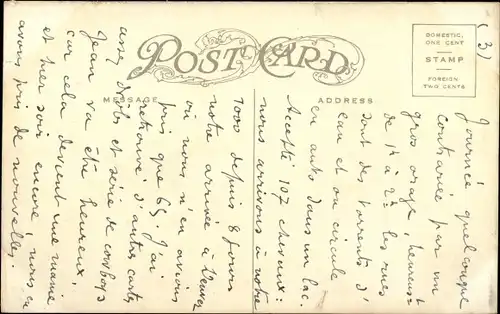 (3)
POST CARD
MESSAGE
ADDRESS
DOMESTIC,
ONE CENT
STAMP
FOREIGN
TWO CENTS
Journée quelconque
contrariée par un
gros orage, heureust
de 1h à 2h les rues
sont des torrents d'
eau et on circule
en auto dans un lac.
Accepté 107 chevaux:
nous arrivons à notre
1000 depuis 8 jours
notre arrivée à Denver
où nous n'en avions
pris que 65. J'ai
retrouvé d'autres cartes
assez drôles et série de cowboys
Jean va être heureux,
car cela devient une manie
et hier soir encore, nous en
avons pris de nouvelles.